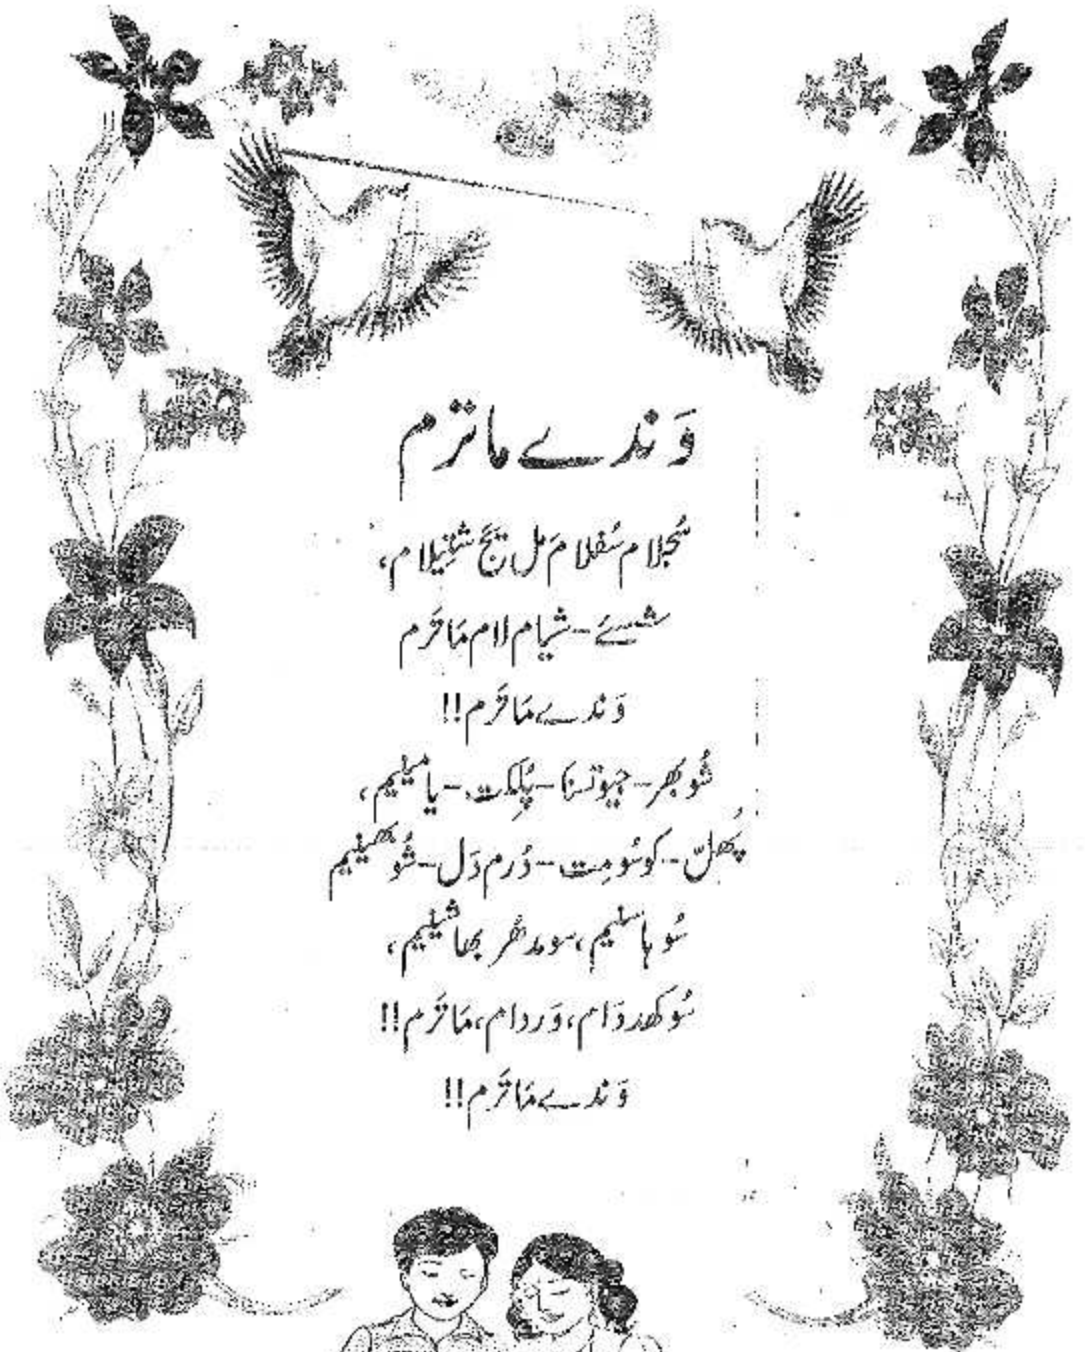 وَندے ماترم
سُجلام سُفلام مَل یَج شیٖتلام،
شسیۓ - شیام لام مَاتَرم
وَندے مَاتَرم!!
شُوبھر - جیوتسنا - پُلکِت - یامینیم،
پُھلّ - کوسُومِت - دُرم دَل - شُوبھینیم
سُو ہاسنیم، سومدھُر بھاشینیم،
سُوکھدَدَام، وَردام، مَاتَرم!!
وَندے مَاتَرم!!